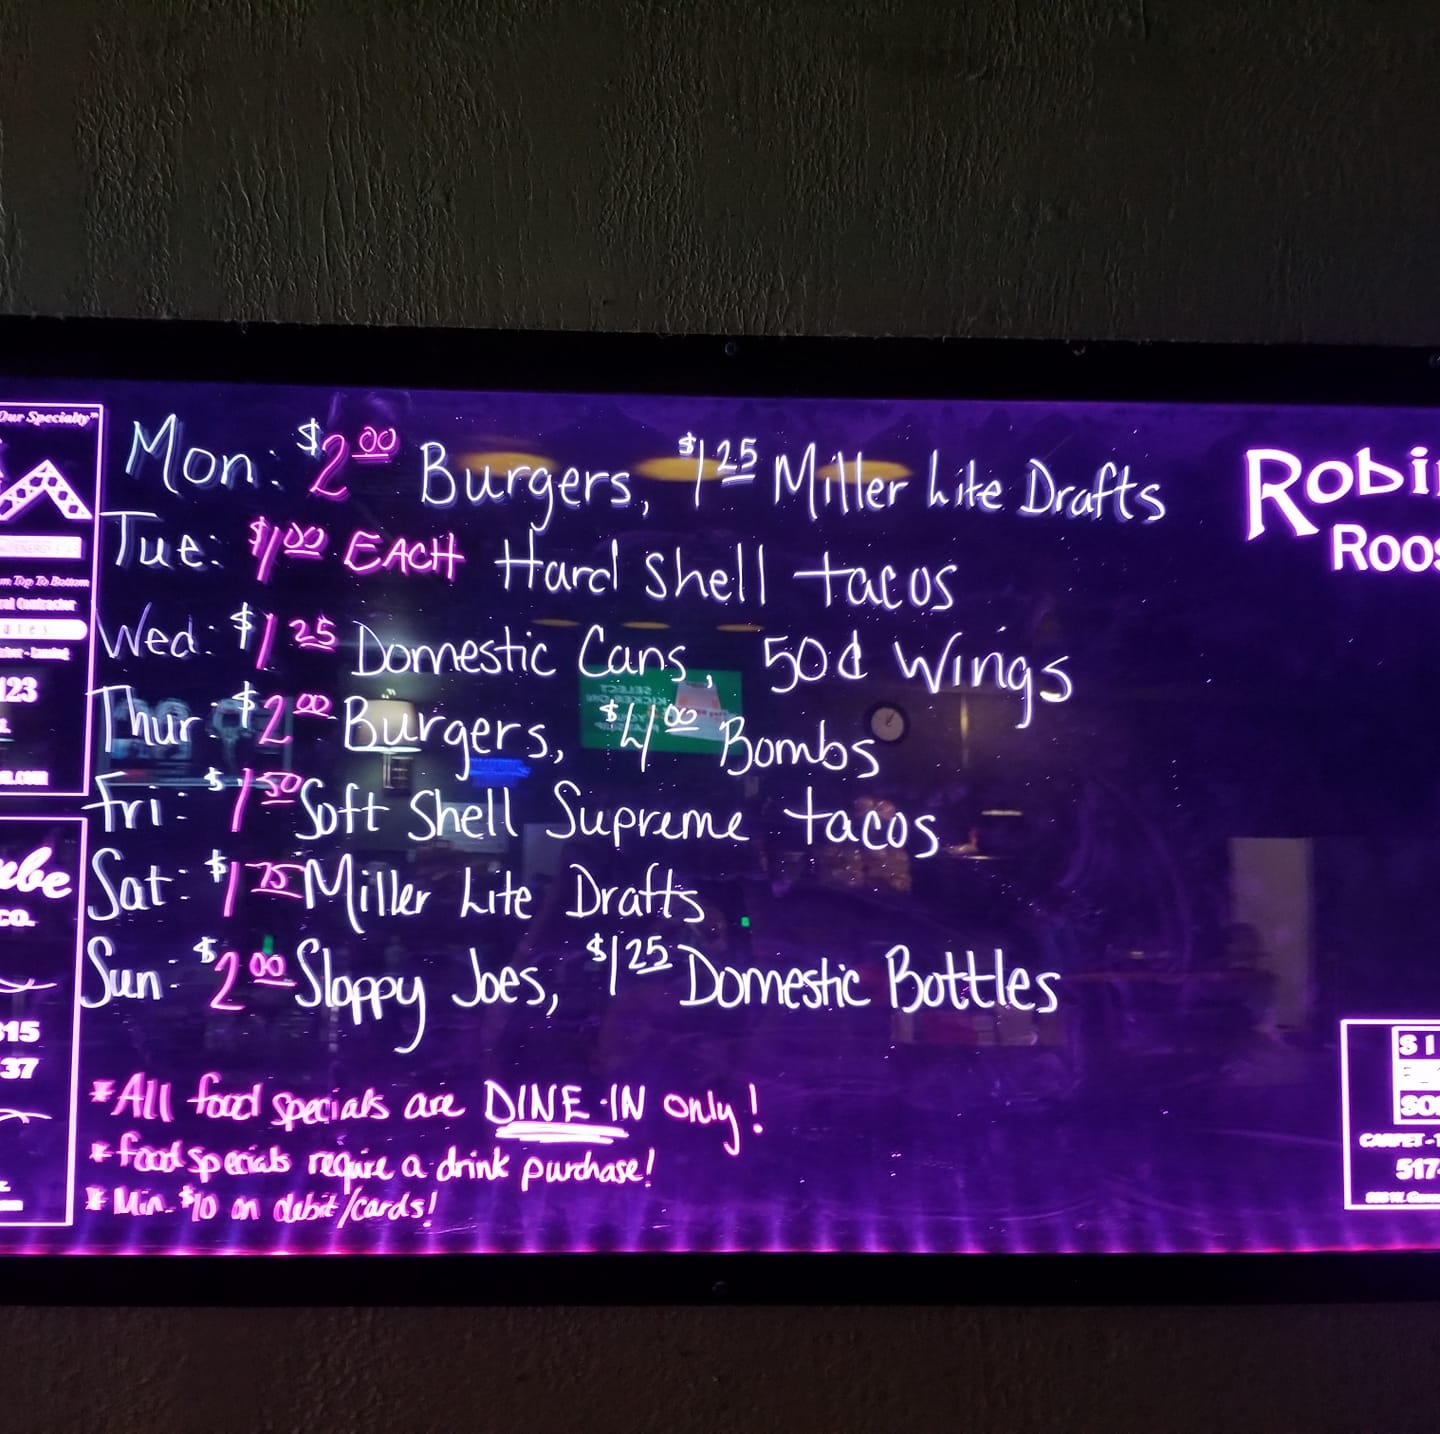 Our Specialty"
Mon: $2.00 Burgers, $1.25 Miller Lite Drafts
Tue: $1.00 EACH Hard Shell tacos
Wed: $1.25 Domestic Cans, 50¢ Wings
Thur: $2.00 Burgers, $4.00 Bombs
Fri: $1.50 Soft Shell Supreme tacos
Sat: $1.75 Miller Lite Drafts
Sun: $2.00 Sloppy Joes, $1.25 Domestic Bottles
*All food specials are DINE-IN only!
*food specials require a drink purchase!
*Min. $10 on debit/cards!
Top To Bottom
Contractor
123
co.
315
37
Robi
Roos
SI
SO
CARPET - T
517-